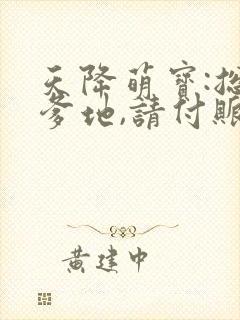 天降萌寶:
爹地,請付
黃建中